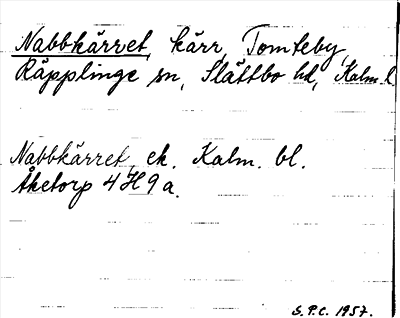 Nabbkärret, kärr, Tomteby,
Räpplinge sn, Slättbo hd, Kalm. l.
Nabbkärret, ek. Kalm. bl.
Åketorp 4 H 9 a.
S.P.C. 1957.